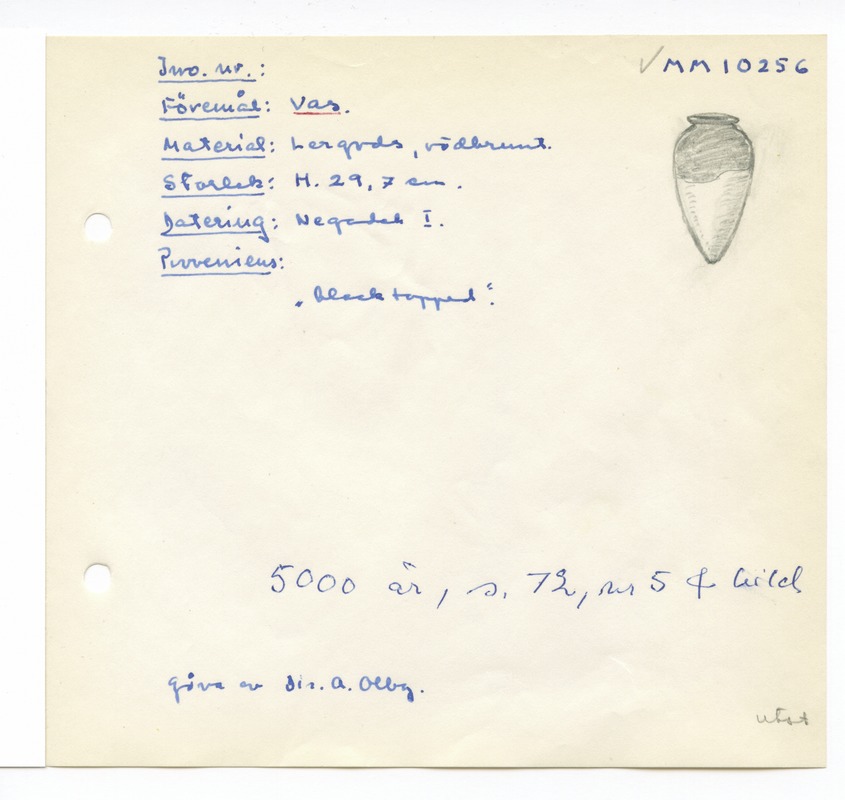 Inv. nr.:
✓MM10256
Föremål: Vas.
Material: Lergods, rödbrunt.
Storlek: H. 29,7 cm.
Datering: Negadeh I.
Proveniens:
„Black topped“.
5000 år, s. 72, nr 5 & bild
gåva av dir. A. Olby.
utst